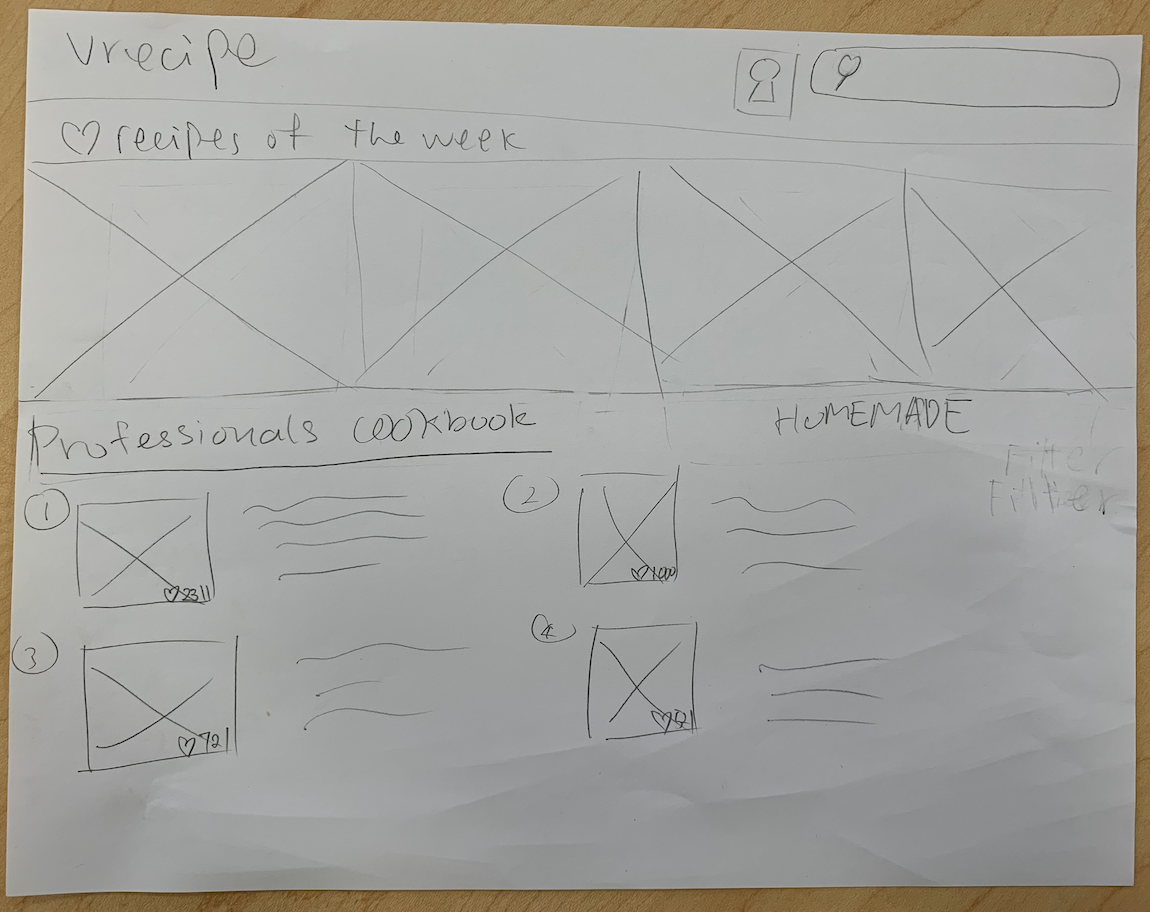 vrecipe
♡ recipes of the week
Professionals cookbook
HOMEMADE
Filter
Filter
1
♡2311
2
♡1000
3
♡721
4